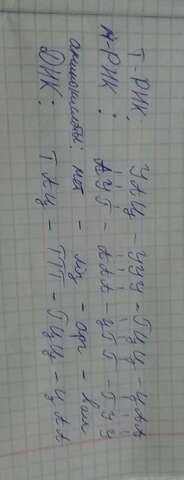 Т-РНК: УАЦ - УУУ - ГЦЦ - ЦАА
и-РНК: АУГ - ААА - ЦГГ - ГУУ
аминокислоты: мет - лиз - арг - вал
ДНК: ТАЦ - ТТТ - ГЦЦ - ЦАА